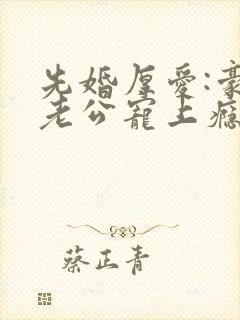 先婚厚爱:豪
老公宠上瘾
蔡正青